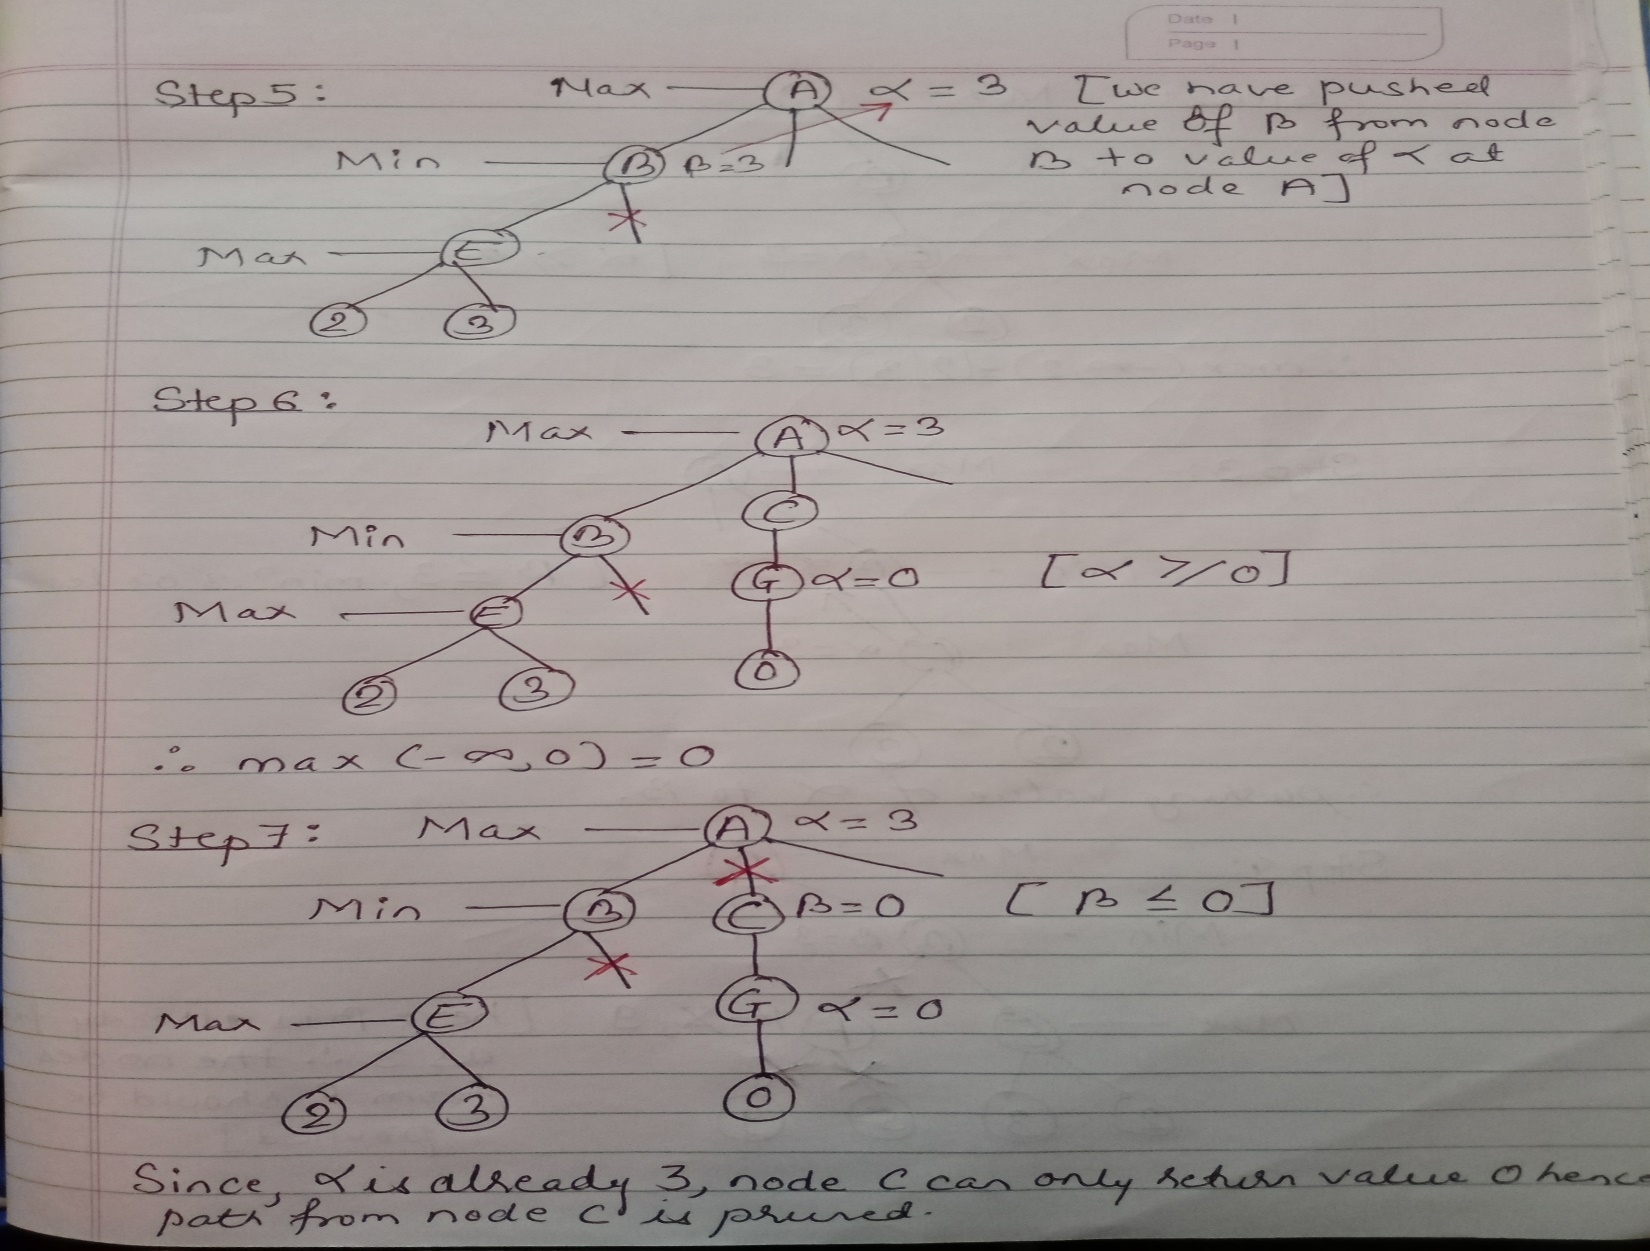 Date
Page
Step 5:
Max A α = 3 [we have pushed
value of B from node
Min B β=3 B to value of α at
node A]
Max E
2 3
Step 6:
Max A α=3
C
Min B
G α=0 [α ≥ 0]
Max E
2 3 0
∴ max (-∞, 0) = 0
Step 7: Max A α = 3
Min B C β=0 [β ≤ 0]
Max E G α=0
2 3 0
Since, α is already 3, node C can only return value 0 hence
path from node C is pruned.